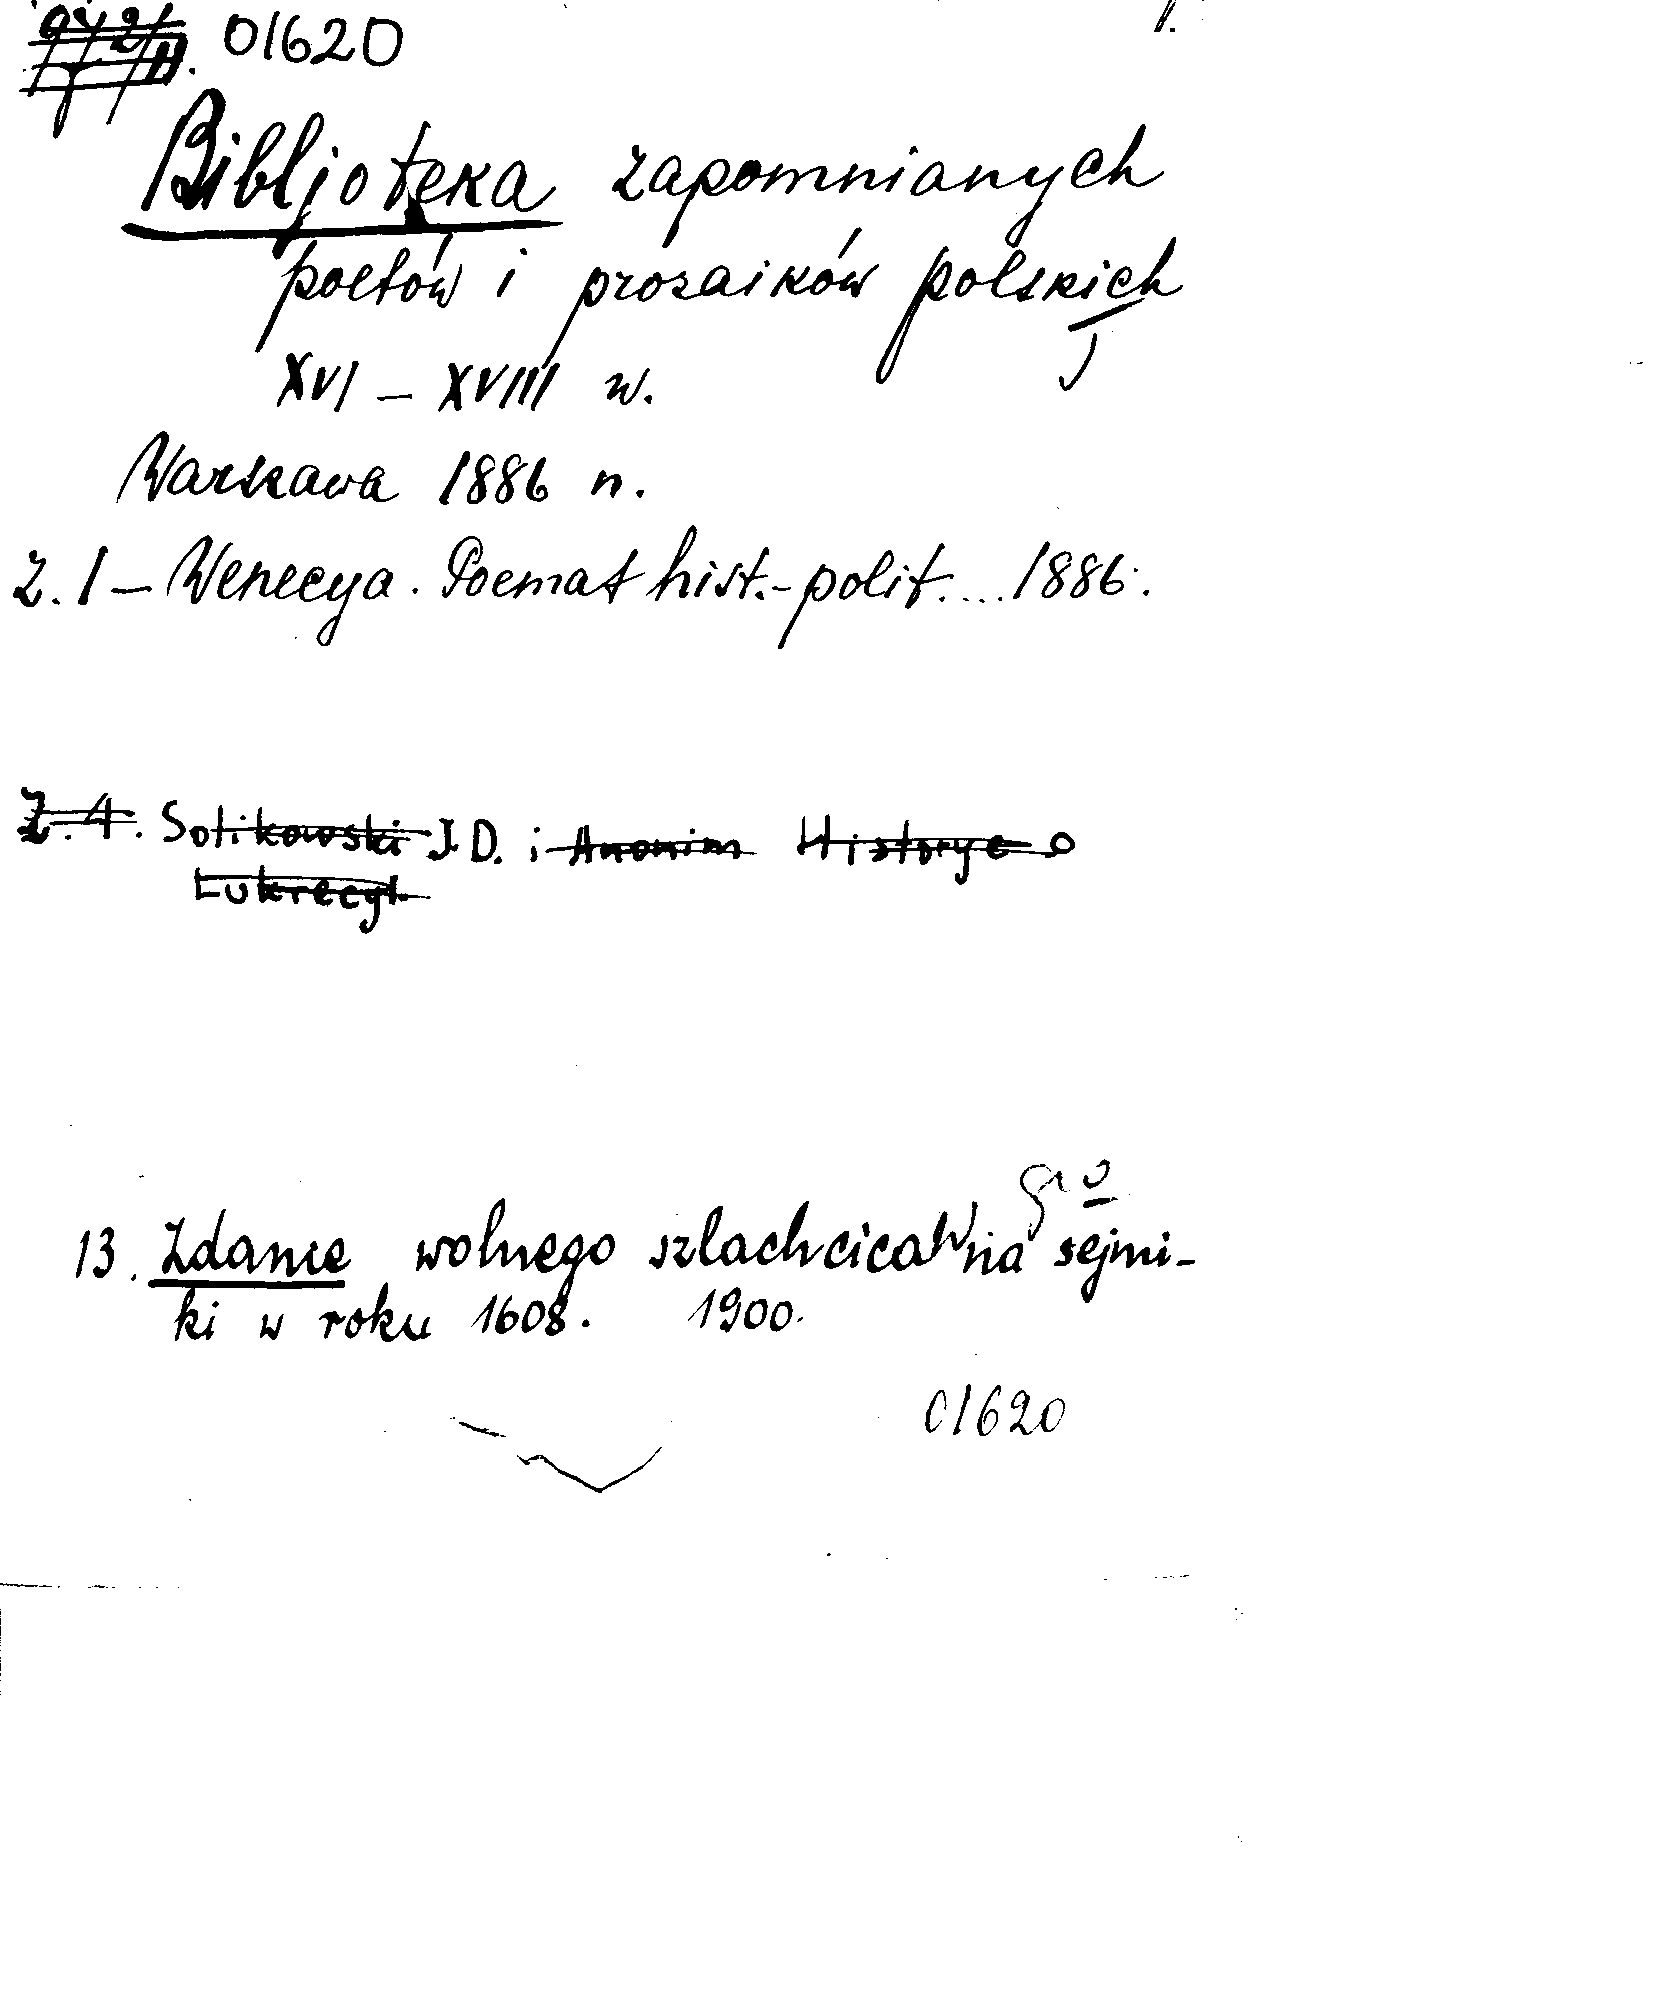 01620
1.
Bibljoteka zapomnianych
poetów i prozaików polskich
XVI – XVIII w.
Warszawa 1886 n.
Z. 1 – Wenecya. Poemat hist.-polit.... 1886.
Z. 4. Solikowski J.D. i Anonim Historye o
Lukrecyi.
13. Zdanie wolnego szlachcica na sejmi-
ki w roku 1608. 1900.
01620